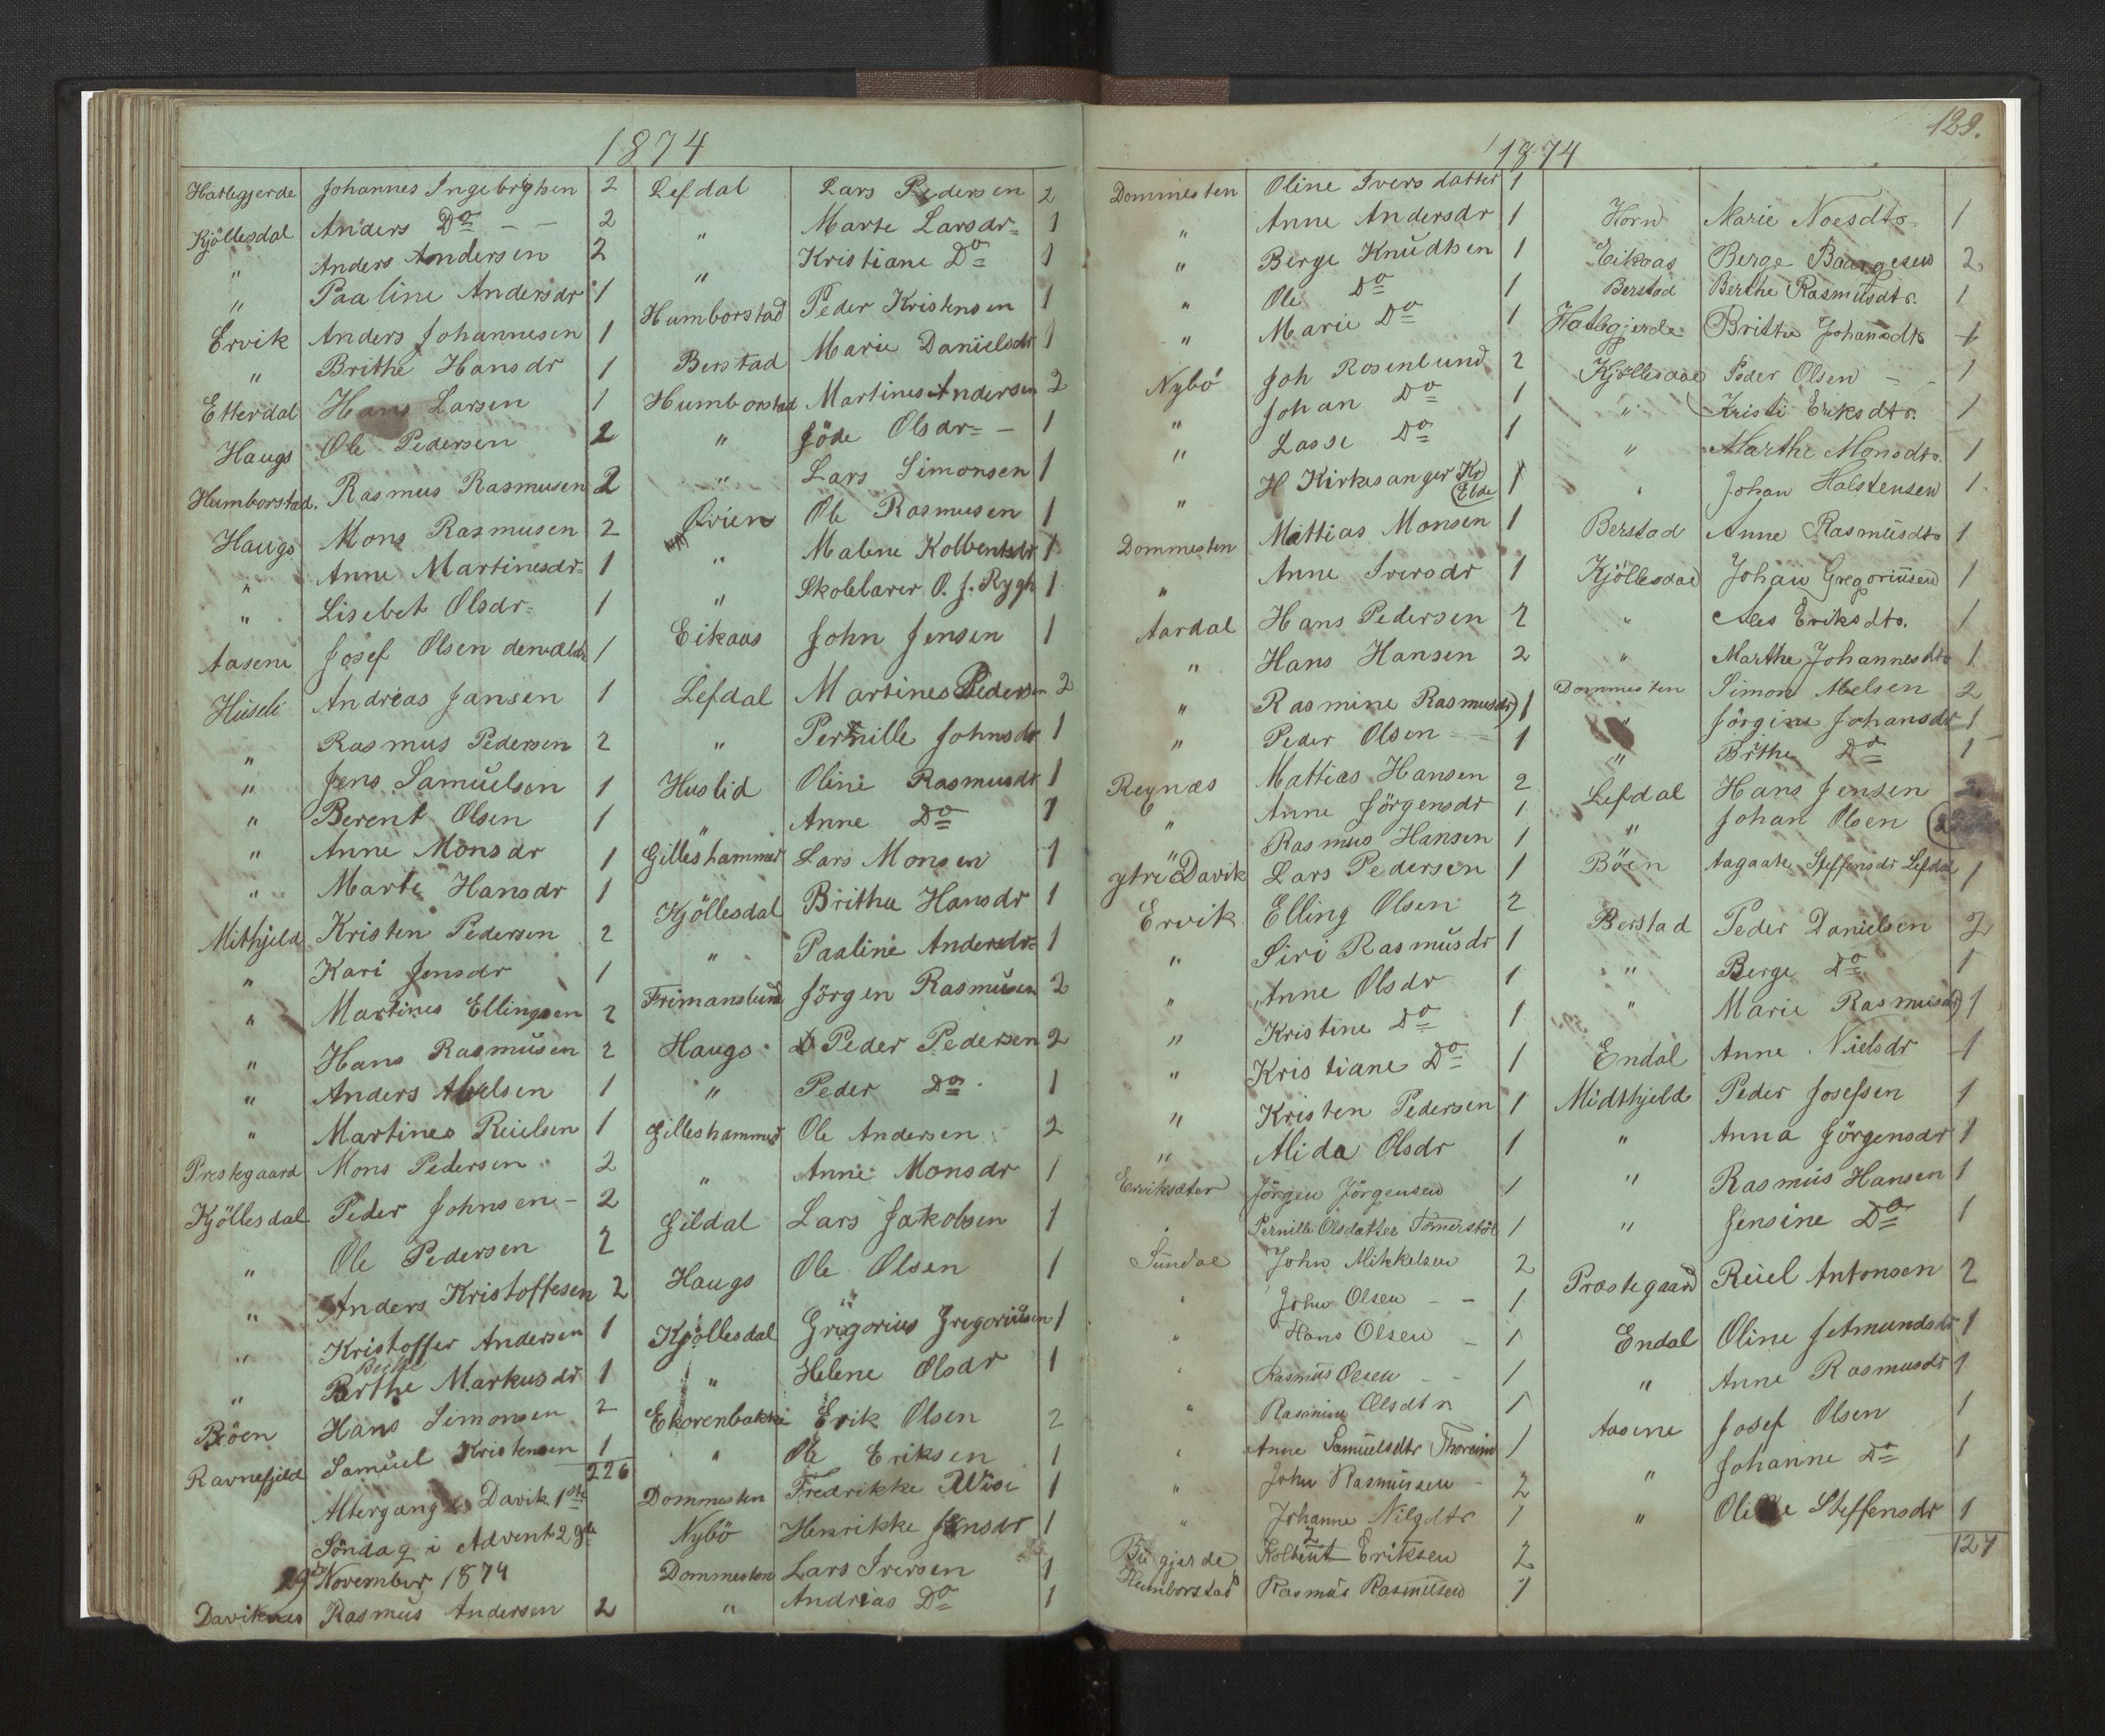 1874
Hatlegjerde Johannes Ingebrigtsen 2
Kjöllesdal Anders Do - - 2
" Anders Andersen 2
" Paaline Andersdr 1
Ervik Anders Johannesen 1
" Brithe Hansdr 1
Etterdal Hans Larsen 1
Haugs Ole Pedersen 2
Humborstad. Rasmus Rasmusen 2
Haugs Mons Rasmusen 2
" Anne Martinesdr 1
" Lisebet Olsdr 1
Aasene Josef Olsen 1
Huseli Andreas Jansen 1
" Rasmus Pedersen 2
" Jens Samuelsen 1
" Berent Olsen 1
" Anne Monsdr 1
" Marte Hansdr 1
Mithjeld Kristen Pedersen 2
" Kari Jensdr 1
" Martines Ellingsen 2
" Hans Rasmusen 2
" Anders Abelsen 1
" Martines Reielsen 1
Prestegaard Mons Pedersen 2
Kjöllesdal Peder Johnsen - 2
" Ole Pedersen 2
" Anders Kristoffesen 2
" Kristoffer Andersen 1
" Berthe Markusdr 1
Böen Hans Simonsen 2
Ravnefjeld Samuel Kristensen 1
226
Altergang i Davik 1ste
Söndag i Advent
29 November 1874
Daviknes Rasmus Andersen 2
Lefdal Lars Pedersen 2
" Marte Larsdr 1
" Kristiane Do 1
Humborstad Peder Kristensen 1
Berstad Marie Danielsdr 1
Humborstad Martines Andersen 2
" Jöde Olsdr - 1
" Lars Simonsen 1
Ole Rasmusen 1
" Malene Kolbentsdr 1
" Skolelærer O. J. Rygh 1
Eikaas John Jensen 1
Lefdal Martines Pedersen 2
" Pernille Johnsdr 1
Huslid Oline Rasmusdr 1
" Anne Do 1
Gilleshammer Lars Monsen 1
Kjöllesdal Brithe Hansdr 1
" Paaline Andersdr 1
Frimanslund Jörgen Rasmusen 2
Haugs Peder Pedersen 2
" Peder Do 1
Gilleshammer Ole Andersen 2
" Anne Monsdr 1
Gildal Lars Jakobsen 1
Haugs Ole Olsen 1
Kjöllesdal Gregorius Gregoriusen 1
" Helene Olsdr 1
Ekorenbakke Erik Olsen 2
" Ole Eriksen 1
Dommesten Fredrikke Wise 1
Nybö Henrikke Jensdr 1
Dommesten Lars Iversen 1
" Andreas Do 1
129.
1874
Dommesten Oline Iversdatter 1
" Anne Andersdr 1
" Berge Knudtsen 1
" Ole Do 1
" Marie Do 1
Nybö Joh Rosenlund 2
" Johan Do 1
" Lasse Do 1
" H Kirkesanger Kr Elde 1
Dommesten Mattias Monsen 1
" Anne Iversdr 1
Aardal Hans Pedersen 2
" Hans Hansen 2
" Rasmine Rasmusdr 1
" Peder Olsen 1
Reynæs Mattias Hansen 2
" Anne Jörgensdr 1
" Rasmus Hansen 1
ytre Davik Lars Pedersen 1
Ervik Elling Olsen 2
" Siri Rasmusdr 1
" Anne Olsdr 1
" Kristine Do 1
" Kristiane Do 1
" Kristen Pedersen 1
" Alida Olsdr 1
Erviksæter Jörgen Jörgensen 1
Pernille Olsdatter 1
Sundal John Mikkelsen 2
" John Olsen - - 1
" Hans Olsen - 1
" Rasmus Olsen - - 1
" Rasmine Olsdtr 1
" Anne Samuelsdtr Thoreim 1
" John Rasmusen - 2
" Johanne Nilsdtr 1
gjerde Kolbent Eriksen 2
Humborstad Rasmus Rasmusen 1
Horn Marie Noesdtr 1
Eikaas Berge Baargesen 2
Berstad Berthe Rasmusdtr. 1
Hatlegjerde Brithe Johansdtr 1
Kjöllesdal Peder Olsen - - 1
" Kristi Eriksdtr. 1
" Marthe Monsdtr. 1
" Johan Halstensen 1
Berstad Anne Rasmusdtr 1
Kjöllesdal Johan Gregoriusen 1
" Eriksdtr. 1
" Marthe Johannesdtr 1
Dommesten Simon Abelsen 2
" Jörgine Johansdr 1
" Brithe Do 1
Lefdal Hans Jensen 2
" Johan Olsen 2
Böen Aagaate Steffensdr Lefdal 1
Berstad Peder Danielsen 2
" Berge Do 1
" Marie Rasmusdr 1
Endal Anne Nielsdr 1
Midthjeld Peder Josefsen 1
" Anna Jörgensdr 1
" Rasmus Hansen 1
" Jensine Do 1
Præstegaard Reiel Antonsen 2
Endal Oline Jetmundsdr 1
" Anne Rasmusdr 1
Aasene Josef Olsen 1
" Johanne Do 1
" Oline Steffensdr 1
127